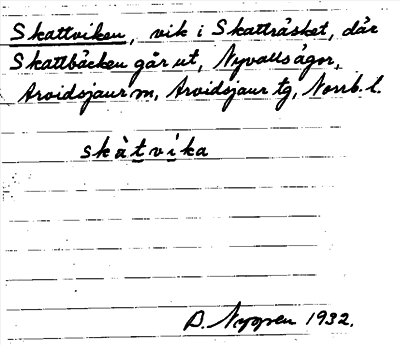 Skattviken, vik i Skatträsket, där
Skattbäcken går ut, Nyvallsägor,
Arvidsjaur m, Arvidsjaur tg, Norrb. l.
skàtvíka
D. Nygren 1932.